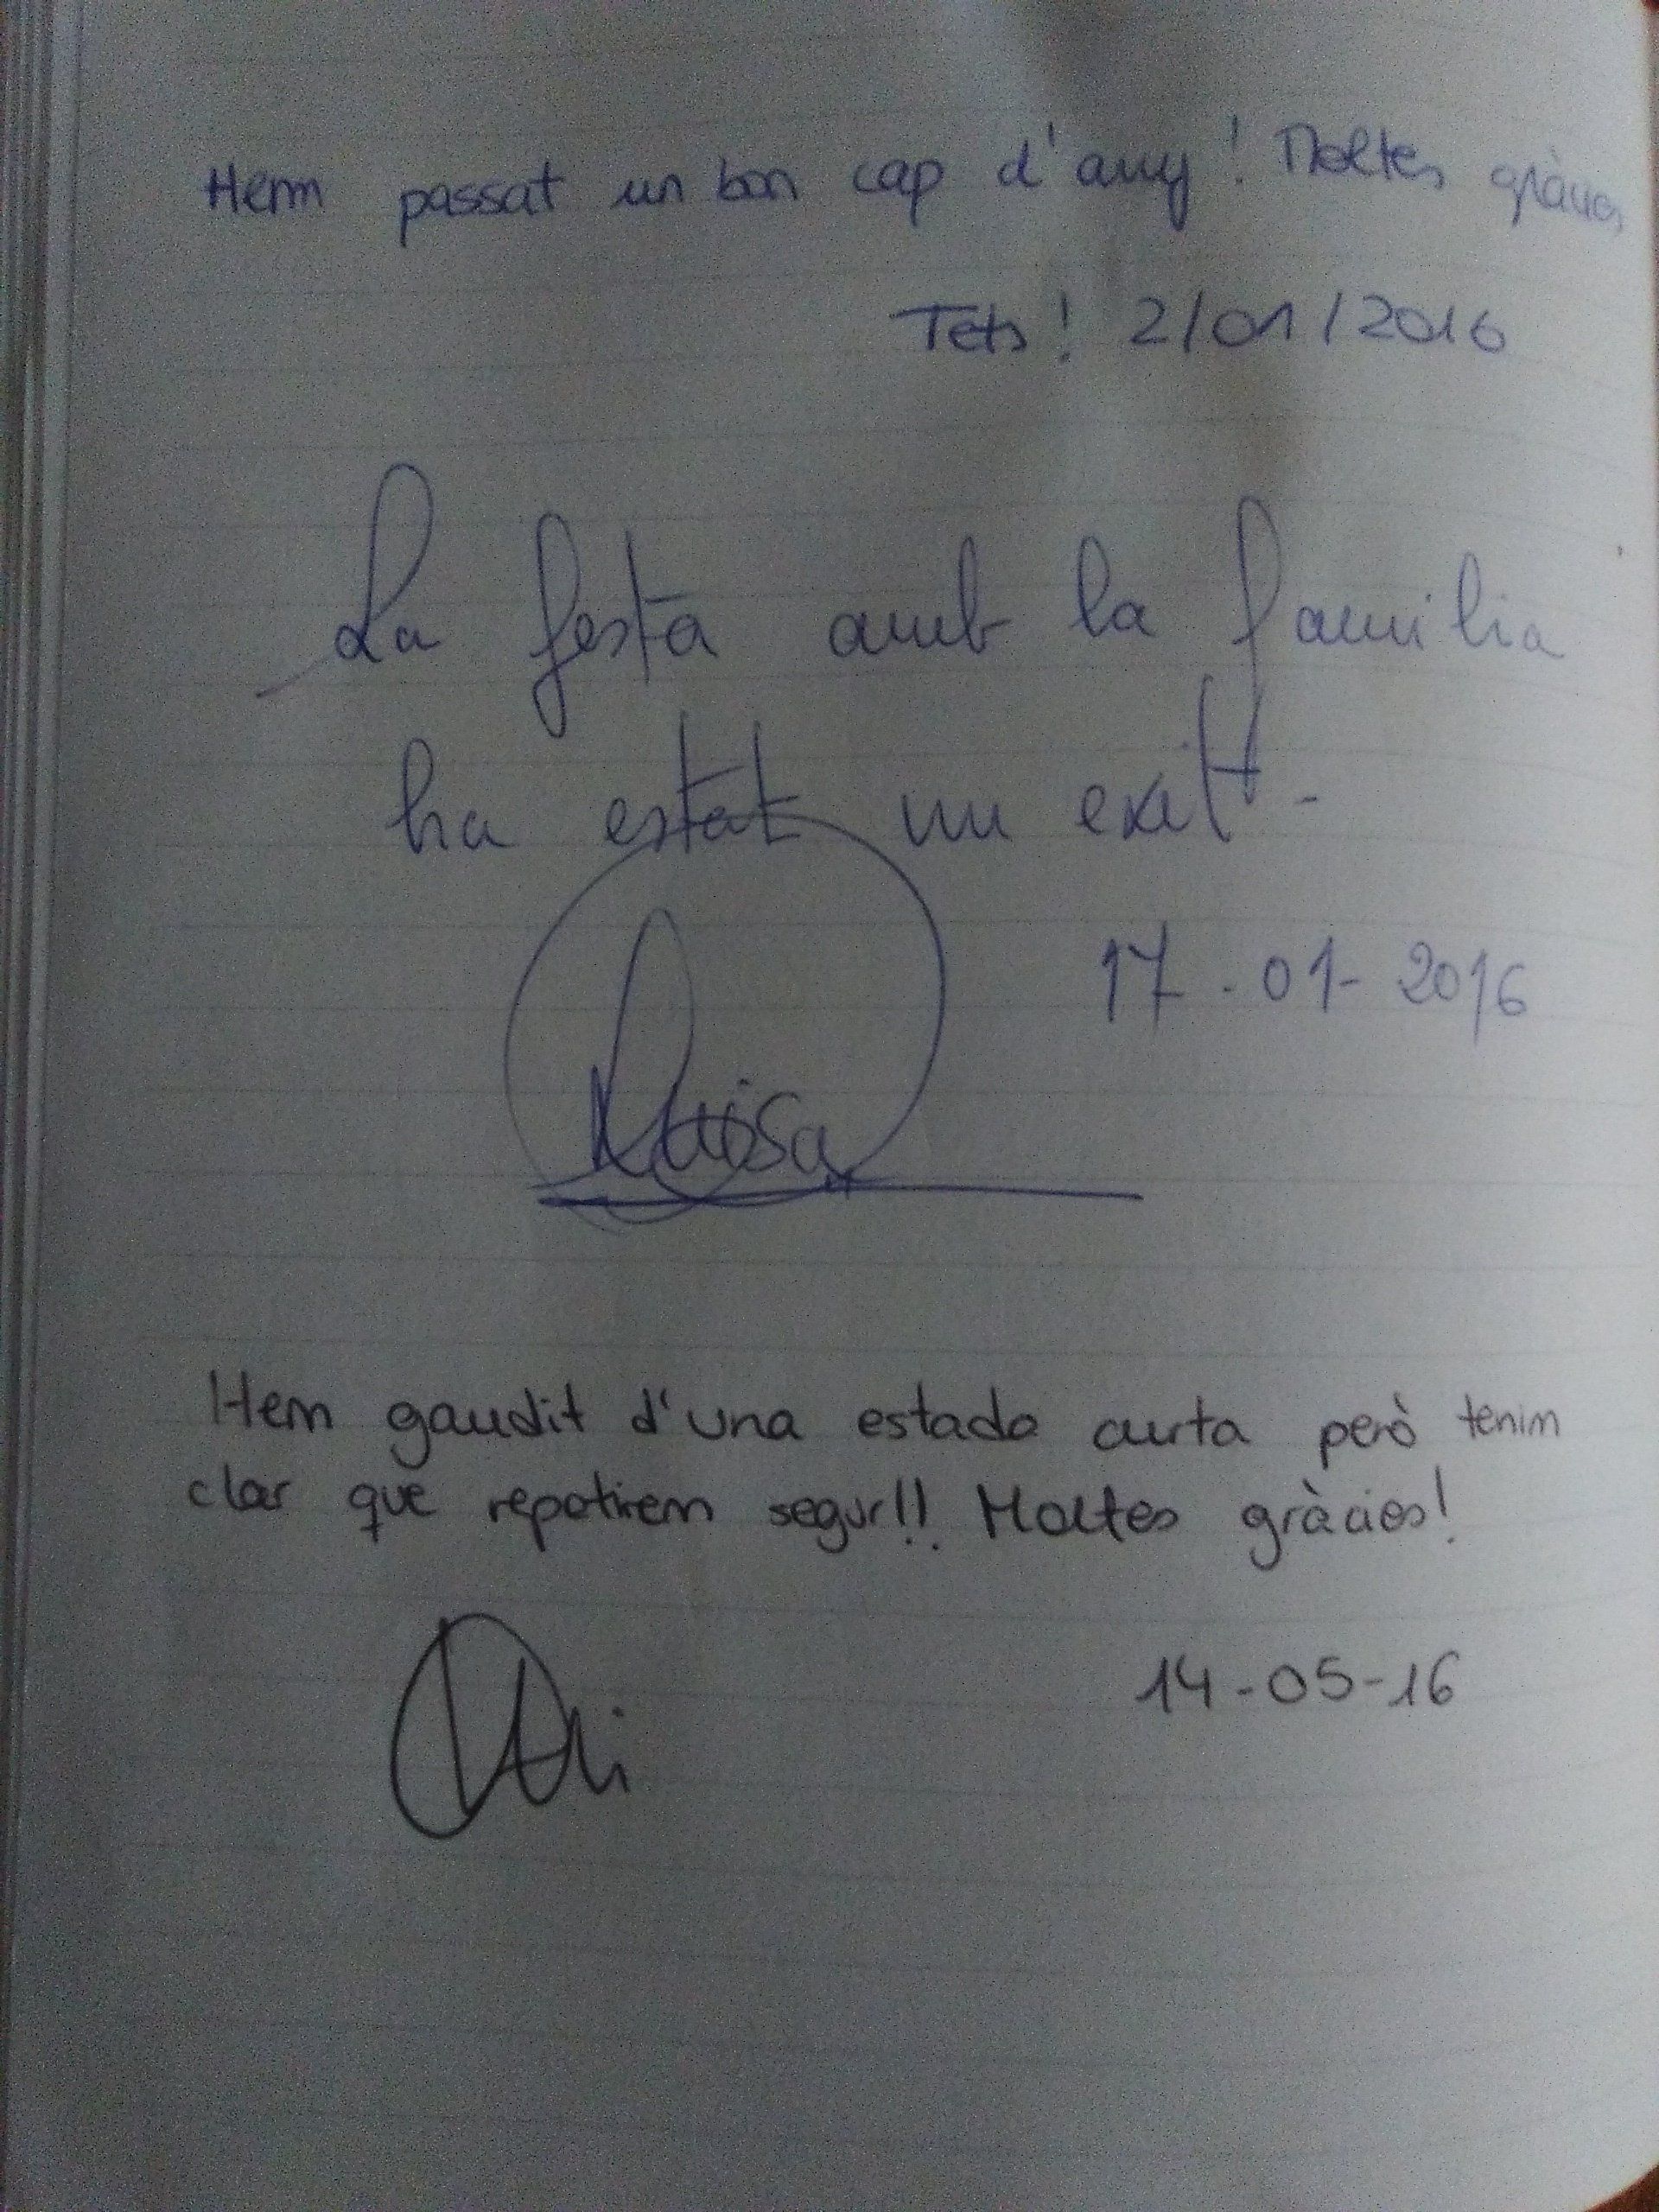 Hem passat un bon cap d'any! Moltes gràcies
Tets! 2/01/2016
La festa amb la familia
ha estat un exit -
17-01-2016
Luisa
Hem gaudit d'una estada curta però tenim
clar que repetirem segur!! Moltes gràcies!
14-05-16